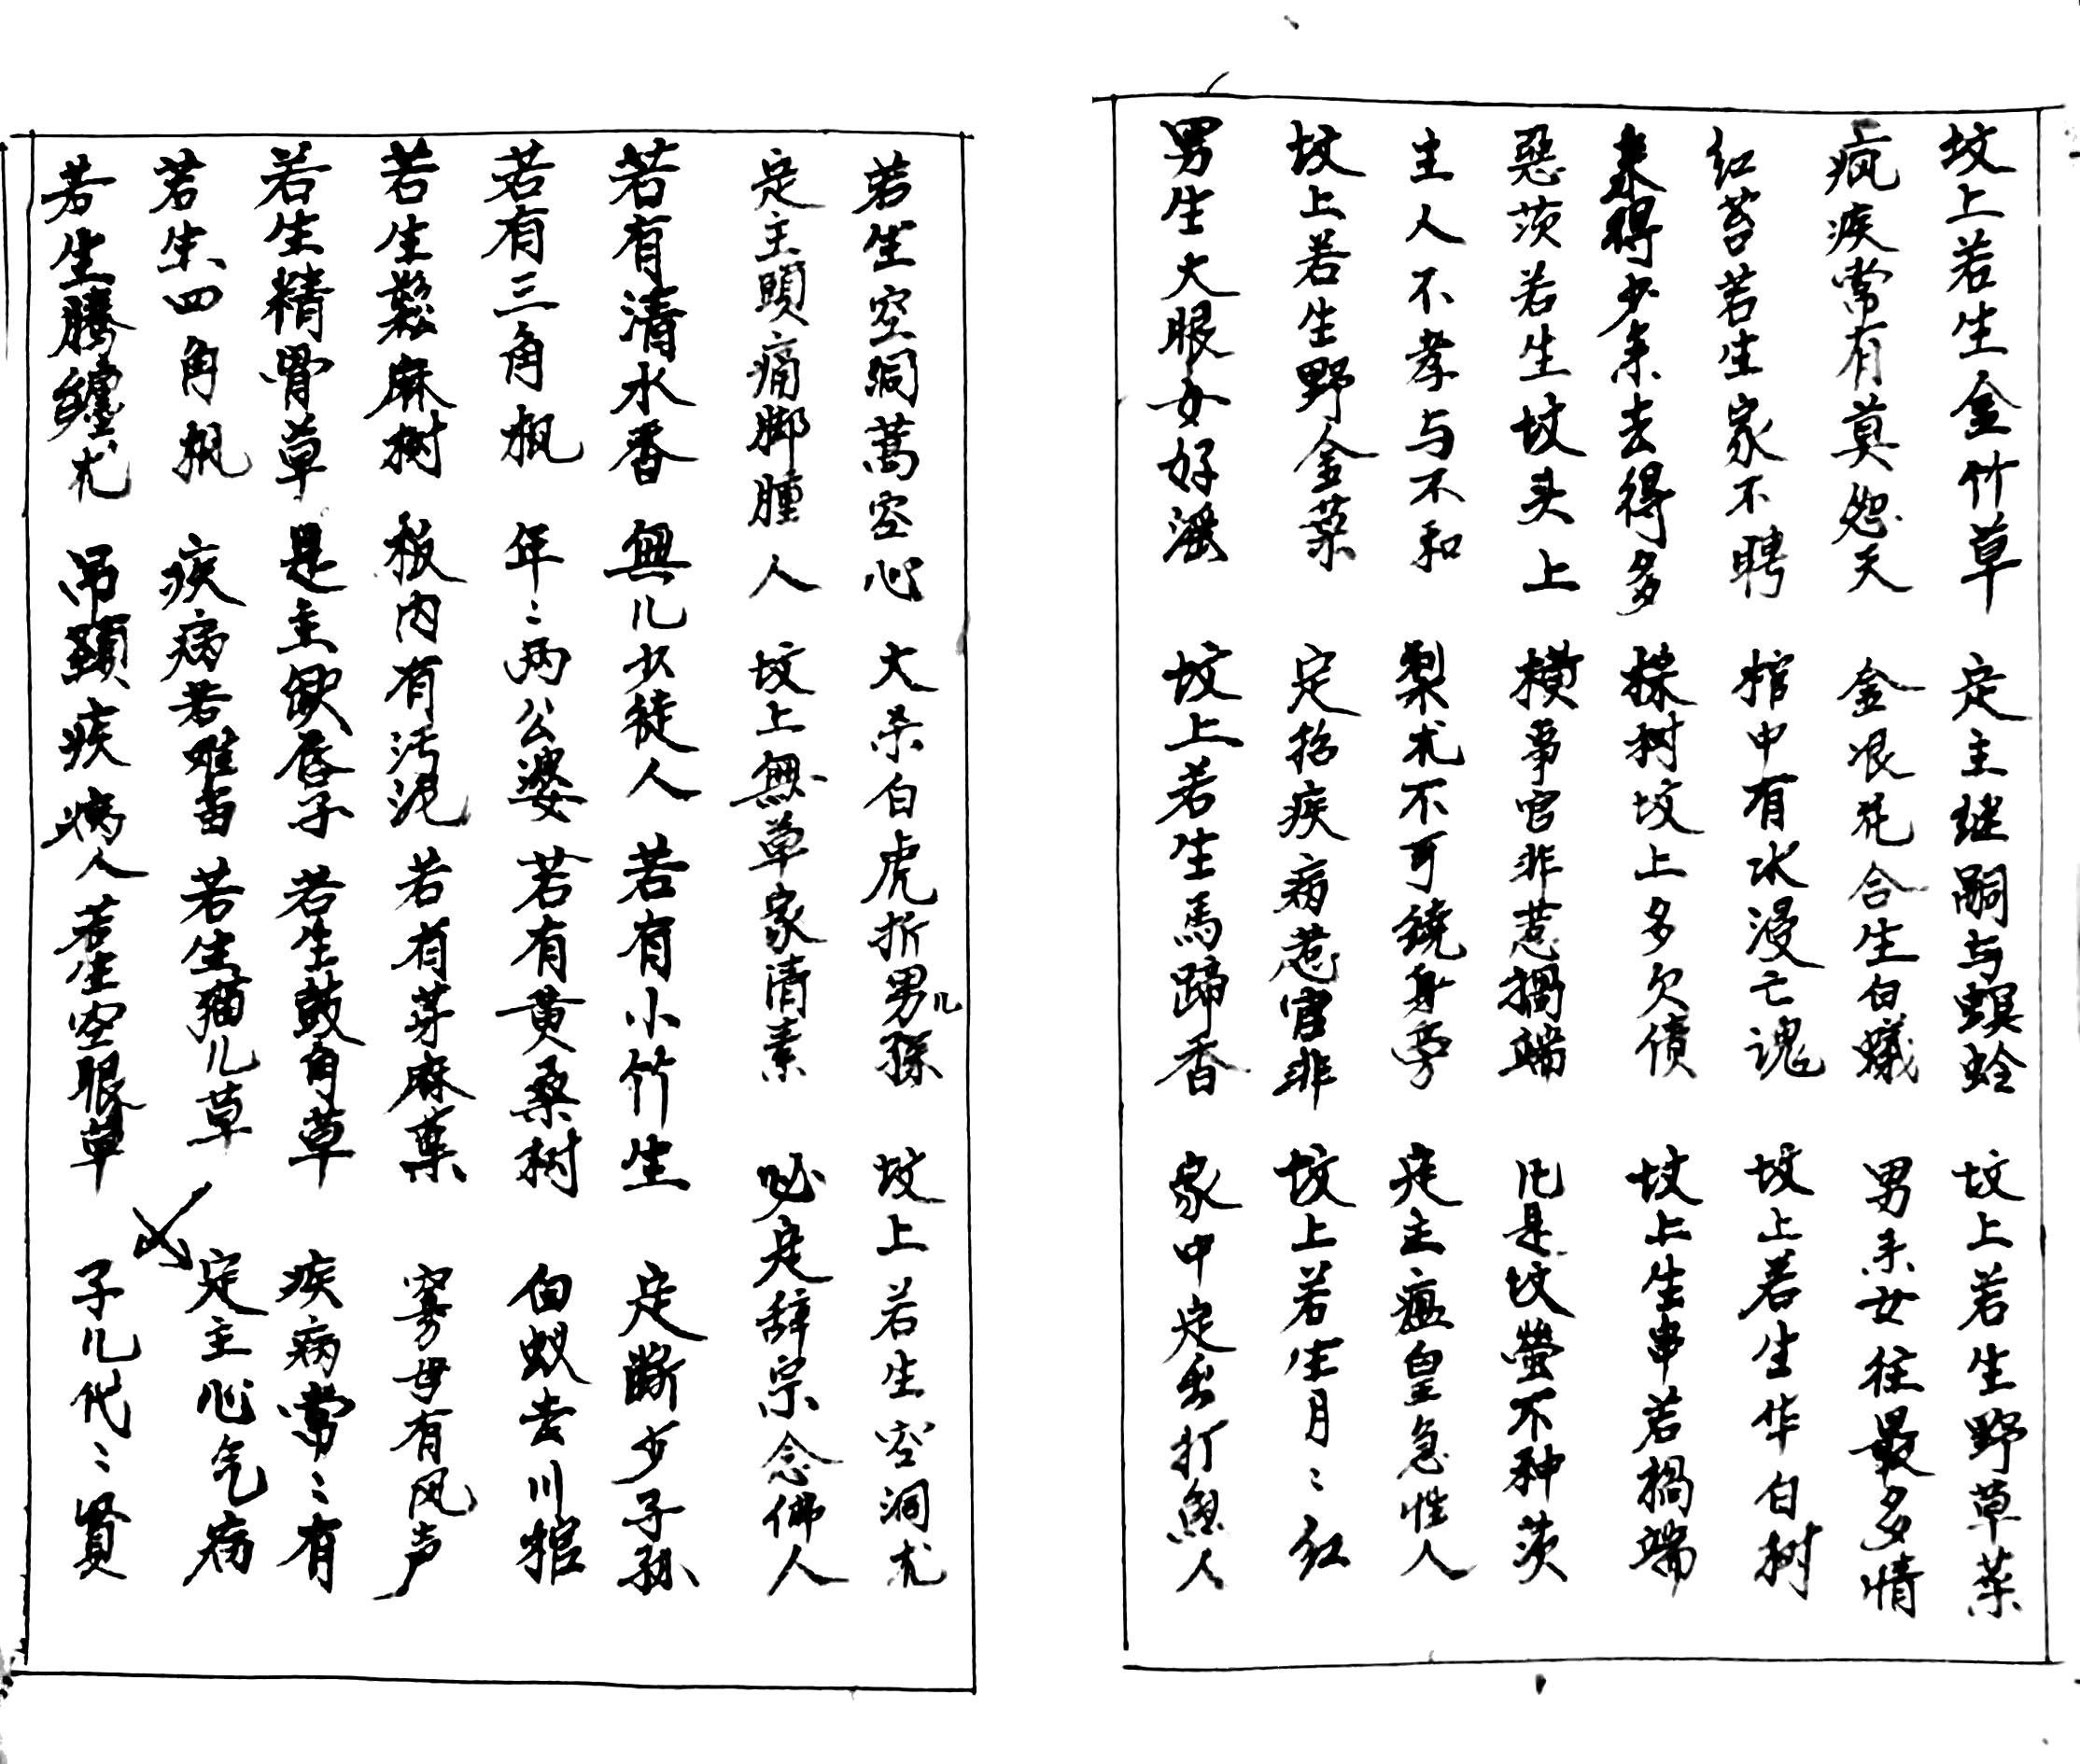 坟上若生金竹草 定主继嗣与螟蛉 坟上若生野草菜
疯疾常有莫怨天 金银花合生白蟻 男来女往最多情
红苔若生家不聘 棺中有水浸亡魂 坟上若生华白树
来得少来去得多 樣树坟上多欠债 坟上生串若禍端
惡茨若生坟头上 横事官非惹禍端 凡是坟塋不种茨
主人不孝与不和 梨木不可繞身旁 定主瘟皇急性人
坟上若生野金菜 定招疾病惹官非 坟上若生月〻红
男生大眼女好滛 坟上若生馬蹄香 家中定出打魚人
若生空洞蒿空心 大杀白虎折男儿孫 坟上若生空洞木
定主頭痛脚腫人 坟上無草家清素 必是辞宗念佛人
若有清水香 無儿少徒人 若有小竹生 定断少子孙
若有三角枫 年〻两公婆 若有黄桑树 白蚁去川棺
若生鬆麻树 板内有污泥 若有芽麻葉 寡母有风声
若生精骨草 是主缺唇子 若生鼓角草 疾病常〻有
若生四角枫 疾病若难当 若生猫儿草 定主心气病
若生腾纏木 吊頸疾病人 若生空眼草 子儿代〻贤